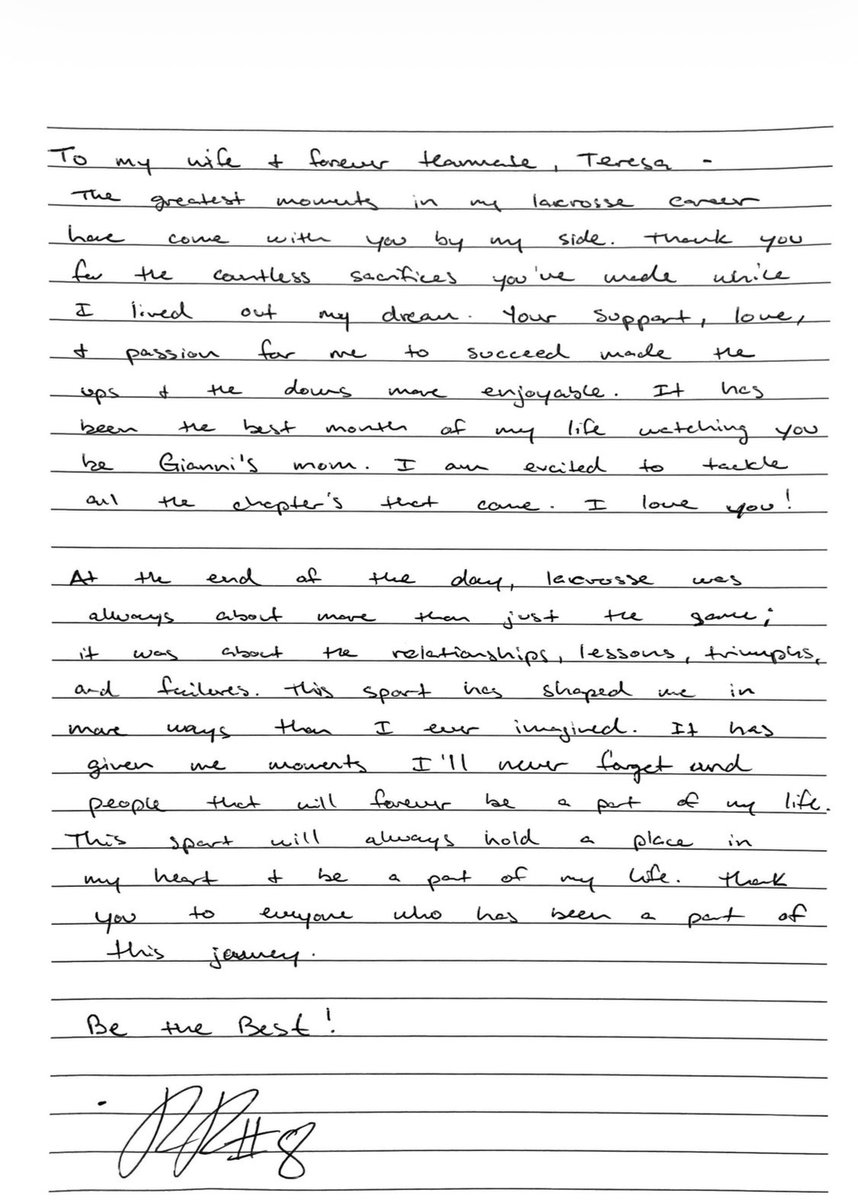 To my wife + forever teammate, Teresa -
The greatest moments in my lacrosse career
have come with you by my side. Thank you
for the countless sacrifices you've made while
I lived out my dream. Your support, love,
+ passion for me to succeed made the
ups + the downs more enjoyable. It has
been the best month of my life watching you
be Gianni's mom. I am excited to tackle
all the chapter's that come. I love you!
At the end of the day, lacrosse was
always about more than just the game;
it was about the relationships, lessons, triumphs,
and failures. This sport has shaped me in
more ways than I ever imagined. It has
given me moments I'll never forget and
people that will forever be a part of my life.
This sport will always hold a place in
my heart + be a part of my life. Thank
you to everyone who has been a part of
this journey.
Be the Best!
#8